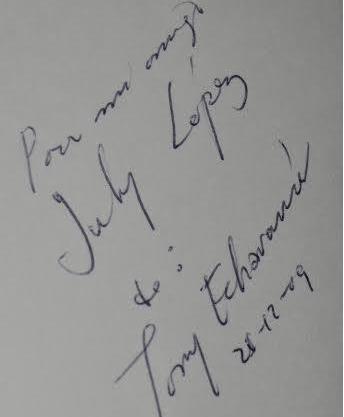 Para mi amigo
July López
de:
Tony Echavarría
28-12-09